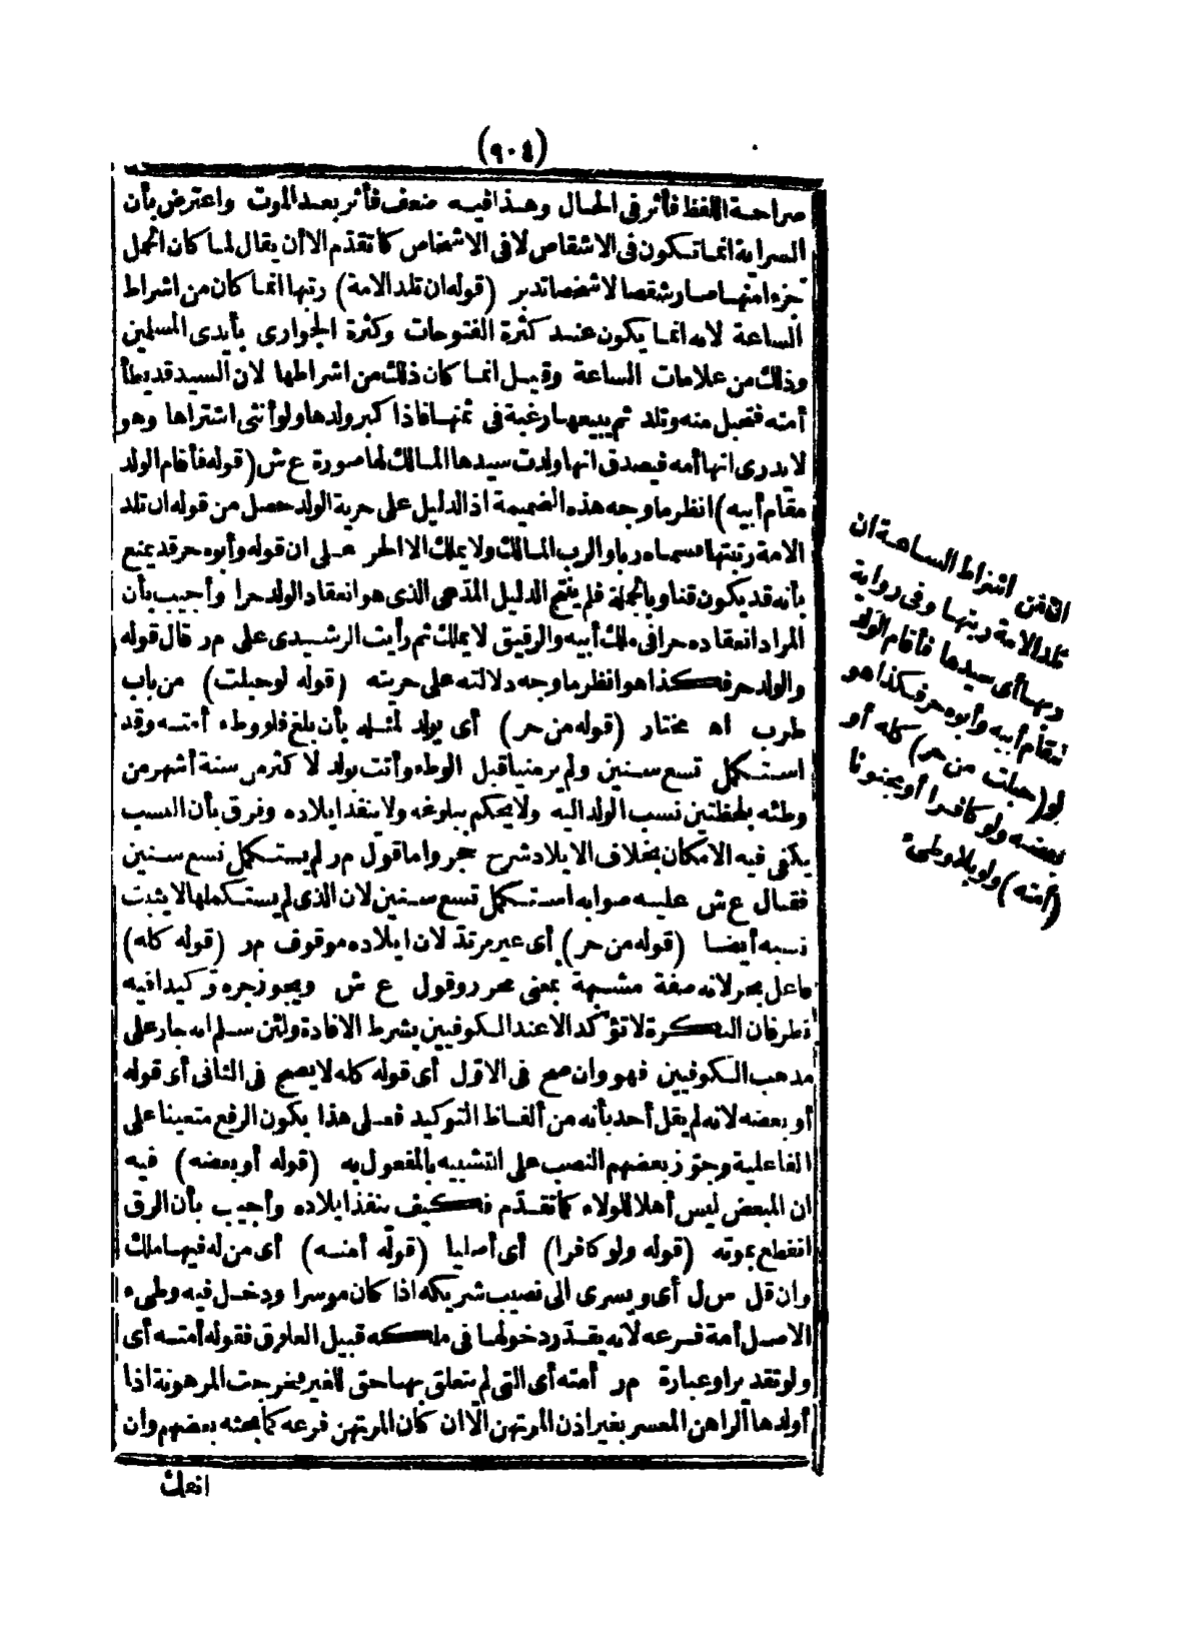 (٩٠٤)
صراحة اللفظ فأثر في الحال وهذا فيه ضعف فأثر بعد الموت واعترض بأن
السراية انما تكون في الاشقاص لا في الاشخاص كما تقدّم الا أن يقال لما كان الحمل
جزءا منها صار شقصا لا شخصا تدبر (قوله ان تلد الامة) ربتها انما كان من اشراط
الساعة لانه انما يكون عند كثرة الفتوحات وكثرة الجوارى بأيدى المسلمين
وذلك من علامات الساعة وقيل انما كان ذلك من اشراطها لان السيد قد يطأ
أمته فتحبل منه وتلد ثم يبيعها رغبة في ثمنها فاذا كبر ولدها ولو أنثى اشتراها وهو
لا يدرى انها أمه فيصدق انها ولدت سيدها المالك لها صورة ع ش (قوله فأقام الولد
مقام أبيه) انظر ما وجه هذه الضميمة اذ الدليل على حرية الولد حصل من قوله ان تلد
الامة ربتها فسماه ربا والرب المالك ولا يملك الا الحر على ان قوله وأبوه حر قد يمنع
بأنه قد يكون قنا وبالجملة فلم ينتج الدليل المدّعى الذى هو انعقاد الولد حرا وأجيب بأن
المراد انعقاده حرا في ملك أبيه والرقيق لا يملك ثم رأيت الرشيدى على م ر قال قوله
والولد حر فكذا هو انظر ما وجه دلالته على حريته (قوله لو حبلت) من باب
طرب اه مختار (قوله من حر) أى يولد لمثله بأن بلغ فلو وطء أمته وقد
استكمل تسع سنين ولم ير منيا قبل الوطء وأتت بولد لاكثر من ستة أشهر من
وطئه بلحظتين نسب الولد اليه ولا يحكم ببلوغه ولا ينفذ ايلاده وفرق بأن النسب
يكفي فيه الامكان بخلاف الايلاد شرح حجر واما قول م ر لم يستكمل تسع سنين
فقال ع ش عليه صوابه استكمل تسع سنين لان الذى لم يستكملها لا يثبت
نسبه أيضا (قوله من حر) أى غير مرتدّ لان ايلاده موقوف م ر (قوله كله)
فاعل بحر لانه صفة مشبهة بمعنى محرر وقول ع ش ويجوز جره توكيدا فيه
نظر فان النكرة لا تؤكد الا عند الكوفيين بشرط الافادة ولئن سلم انه جار على
مذهب الكوفيين فهو وان صح في الاوّل أى قوله كله لا يصح في الثانى أى قوله
أو بعضه لانه لم يقل أحد بأنه من ألفاظ التوكيد فعلى هذا يكون الرفع متعينا على
الفاعلية وجوّز بعضهم النصب على التشبيه بالمفعول به (قوله أو بعضه) فيه
ان المبعض ليس أهلا للولاء كما تقدّم فكيف ينفذ ايلاده وأجيب بأن الرق
انقطع بموته (قوله ولو كافرا) أى أصليا (قوله أمته) أى من له فيها ملك
وان قل س ل أى ويسرى الى نصيب شريكه اذا كان موسرا ودخل فيه وطىء
الاصل أمة فرعه لانه يقدّر دخولها في ملكه قبيل العلوق فقوله أمته أى
ولو تقديرا وعبارة م ر أمته أى التى لم يتعلق بها حق للغير فخرجت المرهونة اذا
أولدها الراهن المعسر بغير اذن المرتهن الا ان كان المرتهن فرعه كما بحثه بعضهم وان
انفك
ان من اشراط الساعة ان
تلد الامة ربتها وفى رواية
ربها أى سيدها فأقام الولد
مقام أبيه وأبوه حر فكذا هو
لو (حبلت من حر) كله أو
بعضه ولو كافرا أو مجنونا
(أمته) ولو بلا وطىء